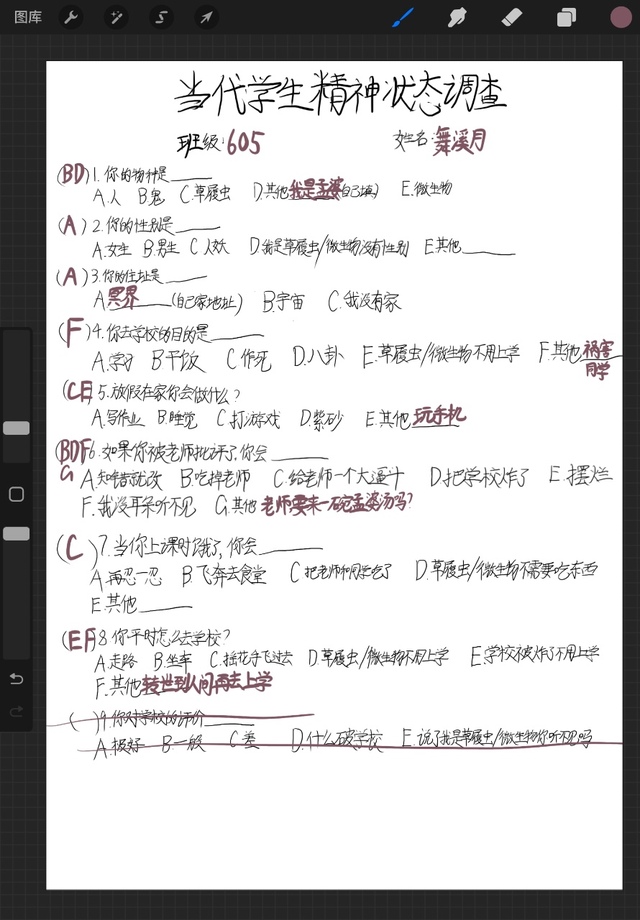 图库
当代学生精神状态调查
班级:605 姓名:舞溪月
(BD)1.你的物种是____
A.人 B.鬼 C.草履虫 D.其他我是孟婆(自己填) E.微生物
(A)2.你的性别是____
A.女生 B.男生 C.人妖 D.我是草履虫/微生物没有性别 E.其他____
(A)3.你的住址是____
A.冥界____(自己家地址) B.宇宙 C.我没有家
(F)4.你去学校的目的是____
A.学习 B.干饭 C.作死 D.八卦 E.草履虫/微生物不用上学 F.其他祸害同学
(CE)5.放假在家你会做什么?
A.写作业 B.睡觉 C.打游戏 D.紫砂 E.其他玩手机
(BDFG)6.如果你被老师批评了,你会____
A.知错就改 B.吃掉老师 C.给老师一个大逼斗 D.把学校炸了 E.摆烂
F.我没耳朵听不见 G.其他老师要来一碗孟婆汤吗?
(C)7.当你上课时饿了,你会____
A.再忍一忍 B.飞奔去食堂 C.把老师和同学吃了 D.草履虫/微生物不需要吃东西
E.其他____
(EF)8.你平时怎么去学校?
A.走路 B.坐车 C.摇花手飞过去 D.草履虫/微生物不用上学 E.学校被炸了不用上学
F.其他转世到人间再去上学
( )9.你对学校的评价____
A.极好 B.一般 C.差 D.什么破学校 E.说了我是草履虫/微生物你听不见吗